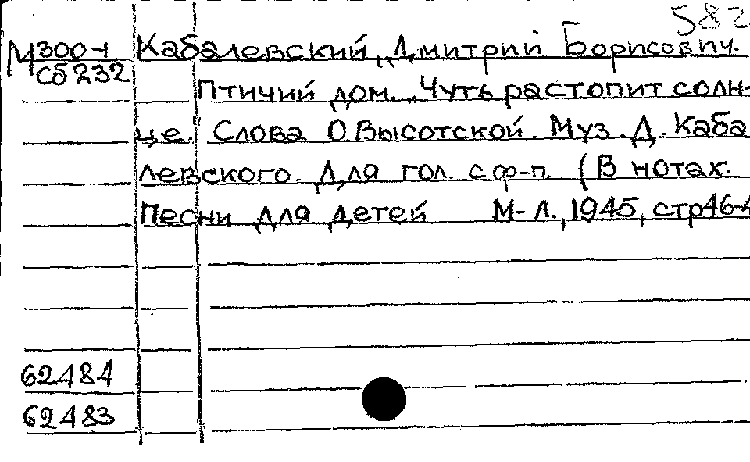 582
М300-1 Кабалевский, Дмитрий Борисович.
Сб232
Птичий дом. „Чуть растопит солн-
це. Слова О.Высотской. Муз. Д. Каба
левского. Для гол. с ф-п. (В нотах:
Песни для детей М-Л., 1945, стр46-4
62484
62483